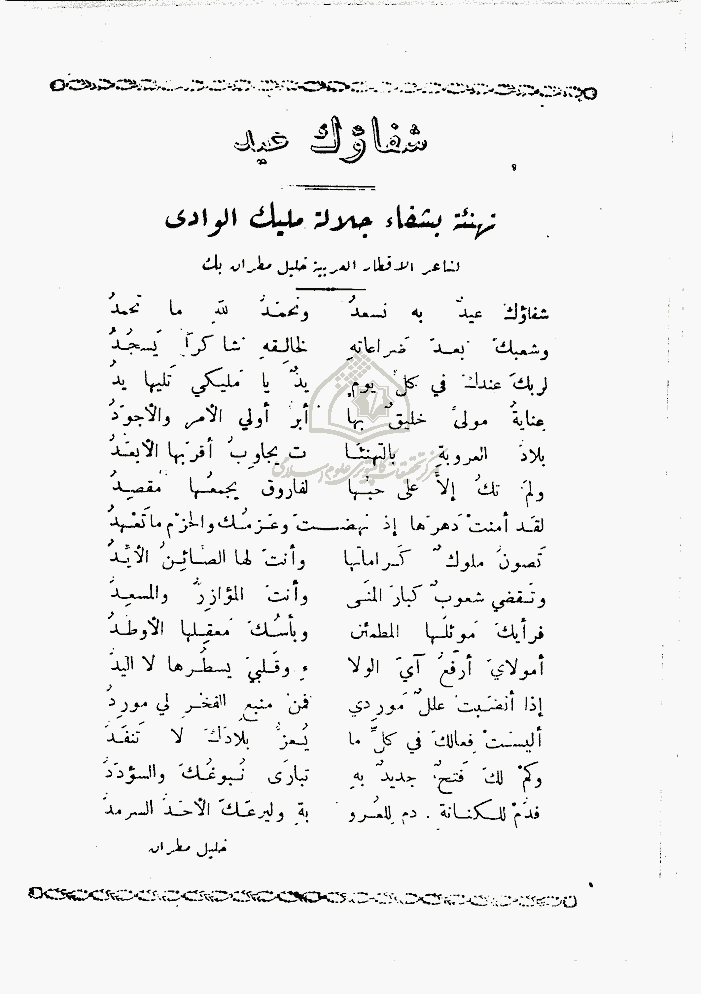 شفاؤك عيد
تهنئة بشفاء جلالة مليك الوادى
لشاعر الاقطار العربية خليل مطران بك
شفاؤك عيدٌ به نسعدُ ونحمدُ للهِ ما نحمدُ
وشعبكَ بعدَ ضَراعاتهِ لخالِقهِ شاكراً يَسجُدُ
لربكَ عندكَ في كلِّ يومٍ يدٌ يا مَليكي تَليها يدُ
عنايةُ مولىً خليقٌ بها أبرُّ أولي الأمرِ والأجودُ
بلادُ العروبةِ بالتهنئا تِ يجاوِبُ أقربَها الأبعدُ
ولم تكُ إلاَّ على حبِّها لفاروق يجمعُها مَقصِدُ
لقد أمنتْ دهرَها إذ نهضـت وعزمُك والحزم ما تَعْهدُ
تَصونُ ملوكٌ كراماتِها وأنتَ لها الصائنُ الأيّدُ
وتقضي شعوبٌ كبارَ المنَى وأنتَ المؤازِرُ والمسعِدُ
فرأيكَ مَوئلُها المطمئن وبأسُكَ مَعقِلها الأوطدُ
أمولايَ أرفعُ آيَ الولا ءِ وقلبيَ يسطُرها لا اليدُ
إذا أنضَبت عللٌ مَوردي فمن منبعِ الفخرِ لي موردُ
أليستْ فِعالكَ في كلِّ ما يُعزُّ بلادَكَ لا تَنفَدُ
وكمْ لكَ فَتحٌ جديدٌ بهِ تبارَى نُبوغُكَ والسؤددُ
فدُمْ للكنانة . دم للعُرو بةِ وليرعَكَ الأحدُ السرمدُ
خليل مطران
مركز تحقيقات كامپيوتری علوم اسلامی